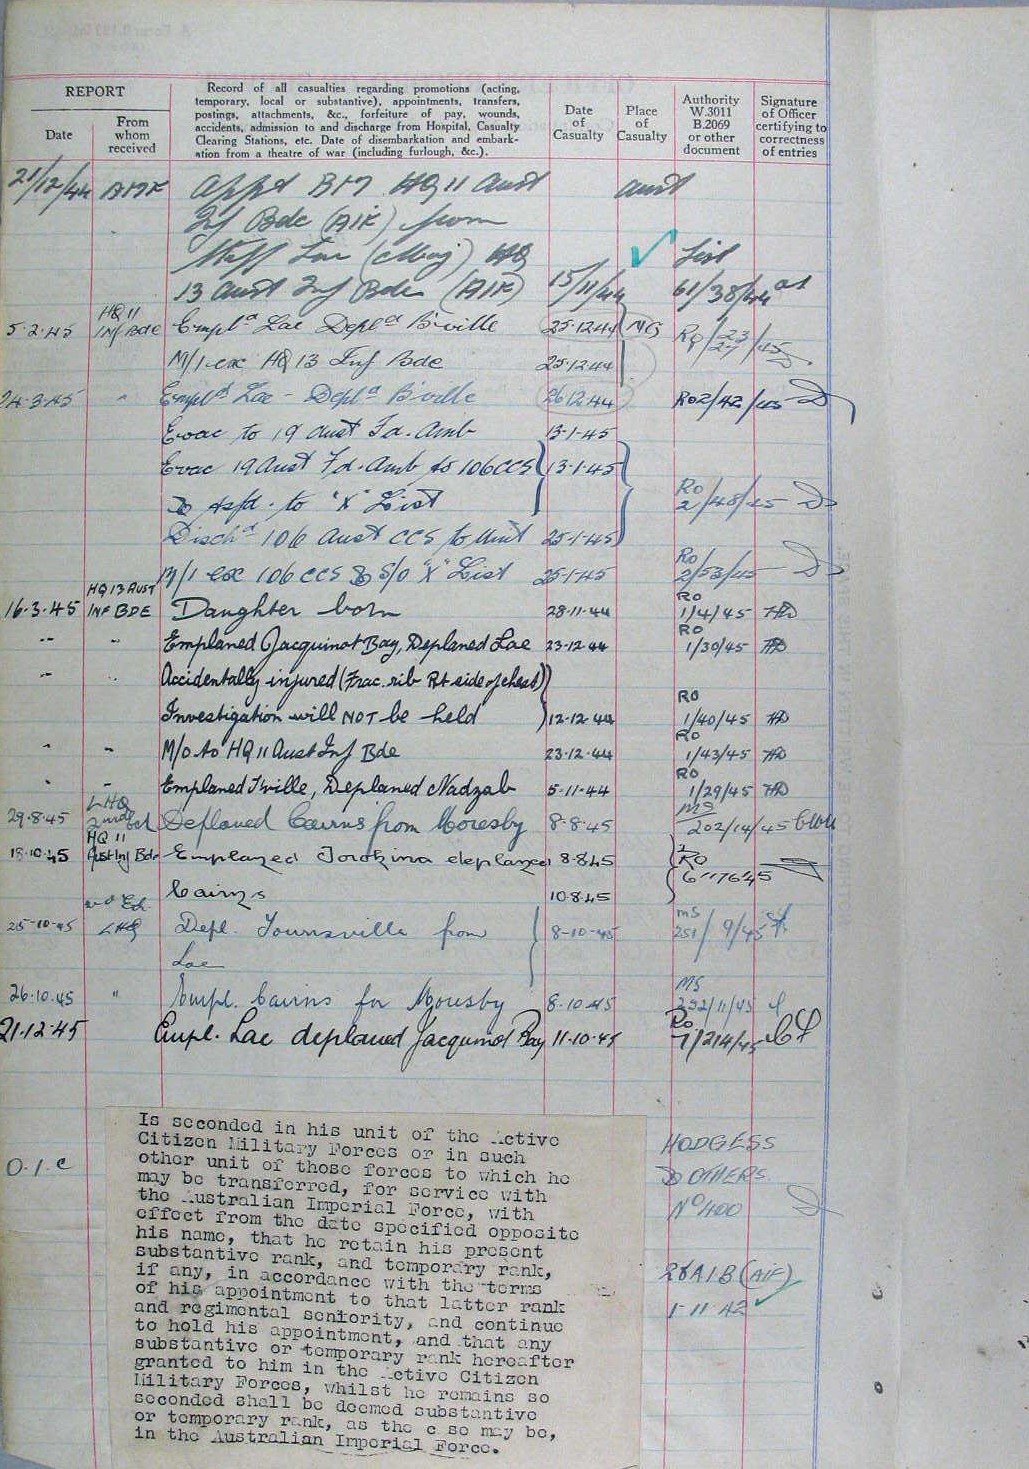 REPORT
Date
From whom received
Record of all casualties regarding promotions (acting,
temporary, local or substantive), appointments, transfers,
postings, attachments, &c., forfeiture of pay, wounds,
accidents, admission to and discharge from Hospital, Casualty
Clearing Stations, etc. Date of disembarkation and embark-
ation from a theatre of war (including furlough, &c.).
Date of Casualty
Place of Casualty
Authority W.3011 B.2069 or other document
Signature of Officer certifying to correctness of entries
21/12/44 Appd BM HQ 11 Aust Aust
Inf Bde (AIF) from
Staff Lar (Maj) HQ List
13 Aust Inf Bde (AIF) 15/11/44 61/38/44
5.2.45 HQ 11 Inf Bde Empld Lae Depld B'ville 25.12.44 RO 23/27/45
M/I exc HQ 13 Inf Bde 25.12.44
24.3.45 " Empld Lae - Depld B'ville 26.12.44 RO2/42/45
Evac to 19 Aust Fd. Amb 13-1-45
Evac 19 Aust Fd. Amb to 106 CCS 13-1-45
& tsfd. to "X" List RO 2/48/45
Dischd 106 Aust CCS to Unit 25-1-45
M/I exc 106 CCS & S/O "X" List 25-1-45 RO 2/53/45
16.3.45 HQ 13 AUST INF BDE Daughter born 28.11.44 RO 1/4/45
-- -- Emplaned Jacquinot Bay, Deplaned Lae 23.12.44 RO 1/30/45
-- -- Accidentally injured (Frac. rib Rt side of chest)
Investigation will NOT be held 12.12.44 RO 1/40/45
- - M/O to HQ 11 Aust Inf Bde 23.12.44 RO 1/43/45
- - Emplaned T'ville, Deplaned Nadzab 5-11-44 RO 1/29/45
29.8.45 LHQ 2nd Ech Deplaned Cairns from Moresby 8.8.45 MS 202/14/45
18.10.45 HQ 11 Aust Inf Bde Emplaned Torokina deplaned 8.8.45 RO 6/176/45
Cairns 10.8.45
25-10-45 2nd Ech LHQ Depl. Townsville from 8-10-45 MS 251/9/45
Lae
26.10.45 " Empl. Cairns for Moresby 8.10.45 MS 252/11/45
21.12.45 Empl. Lae deplaned Jacquinot Bay 11.10.45 RO 7/214/45
Is seconded in his unit of the Active
Citizen Military Forces or in such
other unit of those forces to which he
may be transferred, for service with
the Australian Imperial Force, with
effect from the date specified opposite
his name, that he retain his present
substantive rank, and temporary rank,
if any, in accordance with the terms
of his appointment to that latter rank
and regimental seniority, and continue
to hold his appointment, and that any
substantive or temporary rank hereafter
granted to him in the Active Citizen
Military Forces, whilst he remains so
seconded shall be deemed substantive
or temporary rank, as the case may be,
in the Australian Imperial Force.
O.I.C
HODGESS
& OTHERS
No 400
28 A I B (AIF)
1-11-42